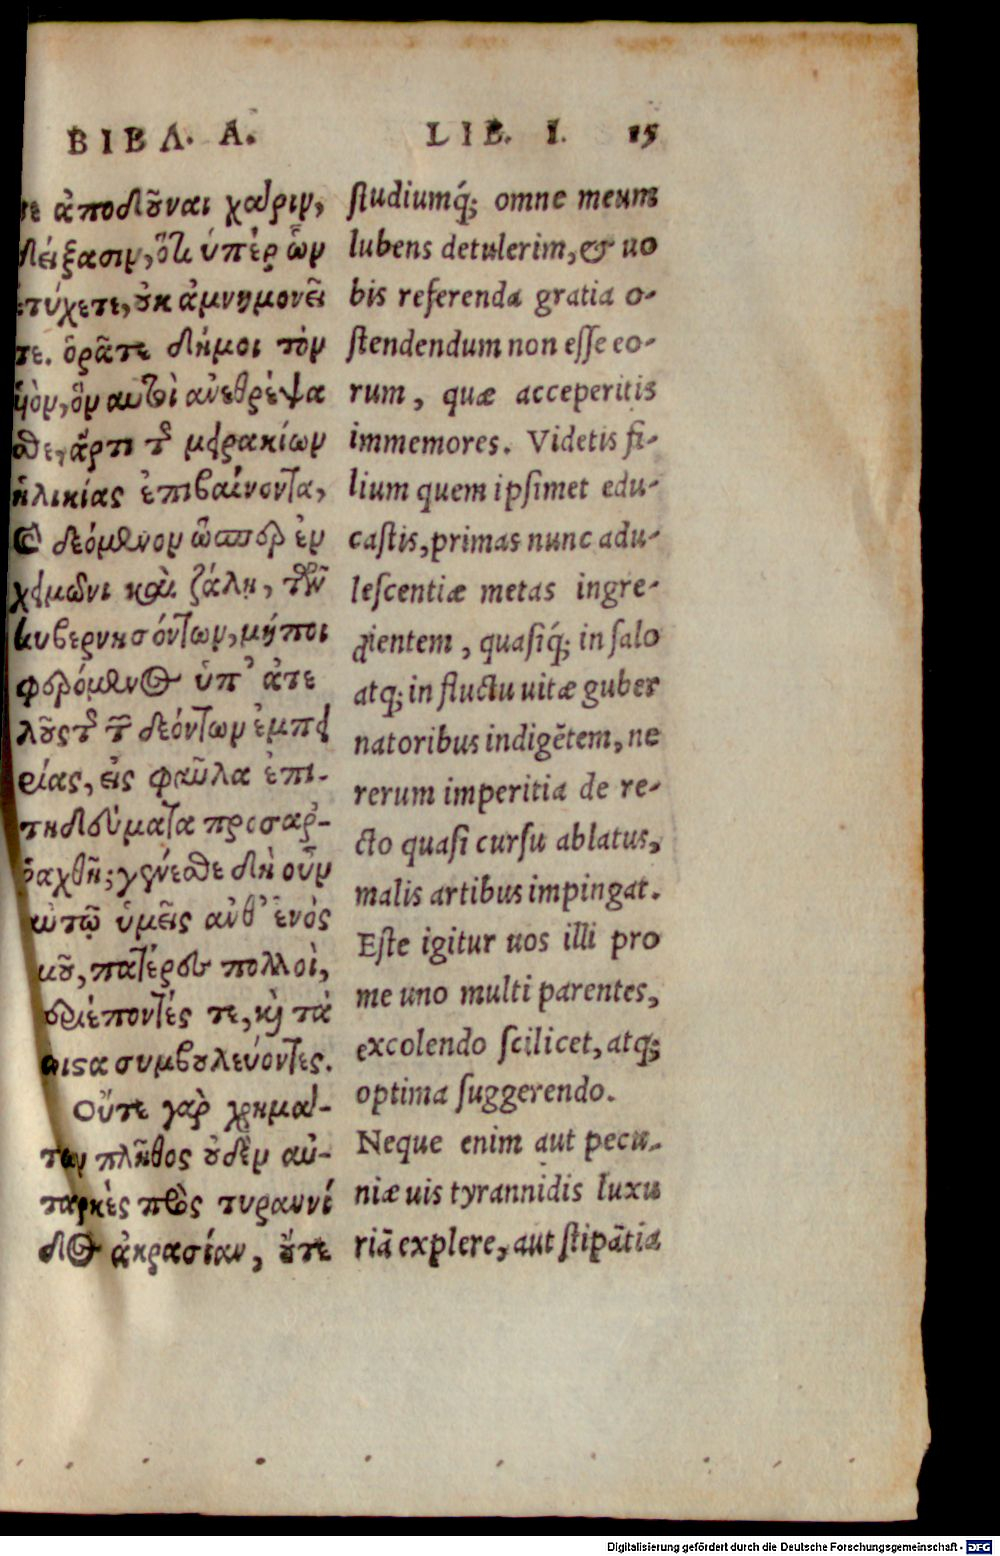 ΒΙΒΛ. Α.
τε ἀποδοῦναι χάριν,
δείξασιν, ὅτι ὑπὲρ ὧν
ἐτύχετε, οὐκ ἀμνημονεῖ
τε. ὁρᾶτε δή μοι τὸν
ὑὸν, ὃν αὐτοὶ ἀνεθρέψα
σθε, ἄρτι τῶν μειρακίων
ἡλικίας ἐπιβαίνοντα,
καὶ δεόμενον ὥσπερ ἐν
χειμῶνι καὶ ζάλῃ, τῶν
κυβερνησόντων, μήποι
φερόμενος ὑπ' ἀτε
λοῦς τῆς τῶν δεόντων ἐμπει
ρίας, εἰς φαῦλα ἐπι-
τηδεύματα προσαρ-
ραχθῇ; γένεσθε δὴ οὖν
αὐτῷ ὑμεῖς ἀνθ' ἑνός
μοῦ, πατέρες πολλοὶ,
περιέποντές τε, καὶ τὰ
ἄριστα συμβουλεύοντες.
Οὔτε γὰρ χρημά-
των πλῆθος οὐδὲν αὐ-
ταρκὲς πρὸς τυραννί
δος ἀκρασίαν, οὔτε
LIB. I. 15
studiumq́; omne meum
lubens detulerim, & uo
bis referenda gratia o-
stendendum non esse eo-
rum, quæ acceperitis
immemores. Videtis fi-
lium quem ipsimet edu-
castis, primas nunc adu-
lescentiæ metas ingre-
dientem, quasiq́; in salo
atq; in fluctu uitæ guber
natoribus indigẽtem, ne
rerum imperitia de re-
cto quasi cursu ablatus,
malis artibus impingat.
Este igitur uos illi pro
me uno multi parentes,
excolendo scilicet, atq;
optima suggerendo.
Neque enim aut pecu-
niæ uis tyrannidis luxu
riã explere, aut stipãtia
Digitalisierung gefördert durch die Deutsche Forschungsgemeinschaft - DFG